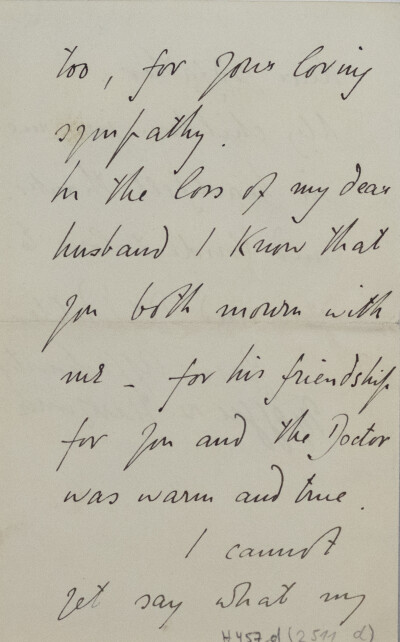 too, for your loving
sympathy.
In the loss of my dear
husband I know that
you both mourn with
me – for his friendship
for you and the Doctor
was warm and true.
I cannot
yet say what my
H457.d (2511 d)